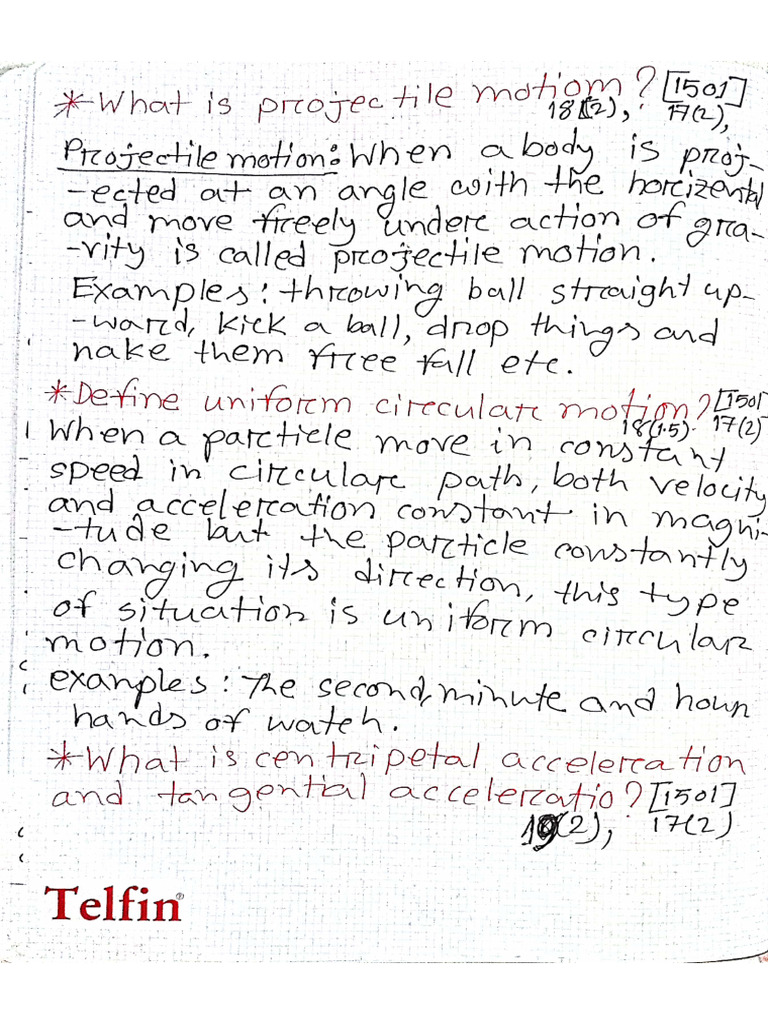 *What is projectile motion? [1501]
18(2), 17(2),
Projectile motion: When a body is proj-
-ected at an angle with the horizental
and move freely under action of gra-
-vity is called projectile motion.
Examples: throwing ball straight up-
-ward, kick a ball, drop things and
nake them free fall etc.
*Define uniform circular motion? [1501
18(1.5). 17(2)
When a particle move in constant
speed in circular path, both velocity
and acceleration constant in magni-
-tude but the particle constantly
changing its direction, this type
of situation is uniform circular
motion.
examples: The second, minute and hour
hands of watch.
*What is centripetal acceleration
and tangential acceleratio? [1501]
19(2), 17(2)
Telfin®